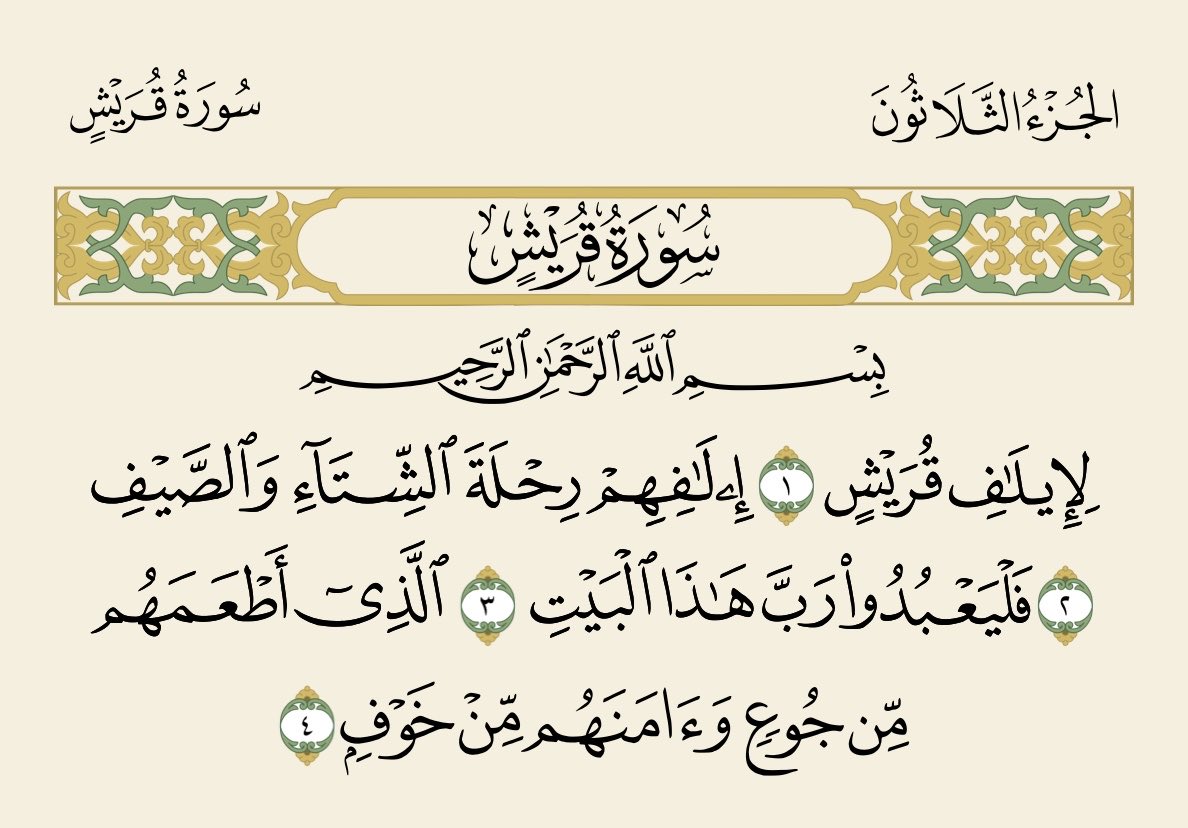 الجُزْءُ الثَّلَاثُونَ
سُورَةُ قُرَيْشٍ
سُورَةُ قُرَيْشٍ
بِسْمِ ٱللَّهِ ٱلرَّحْمَٰنِ ٱلرَّحِيمِ
لِإِيلَٰفِ قُرَيْشٍ ١ إِۦلَٰفِهِمْ رِحْلَةَ ٱلشِّتَآءِ وَٱلصَّيْفِ
٢ فَلْيَعْبُدُوا۟ رَبَّ هَٰذَا ٱلْبَيْتِ ٣ ٱلَّذِىٓ أَطْعَمَهُم
مِّن جُوعٍ وَءَامَنَهُم مِّنْ خَوْفٍۭ ٤